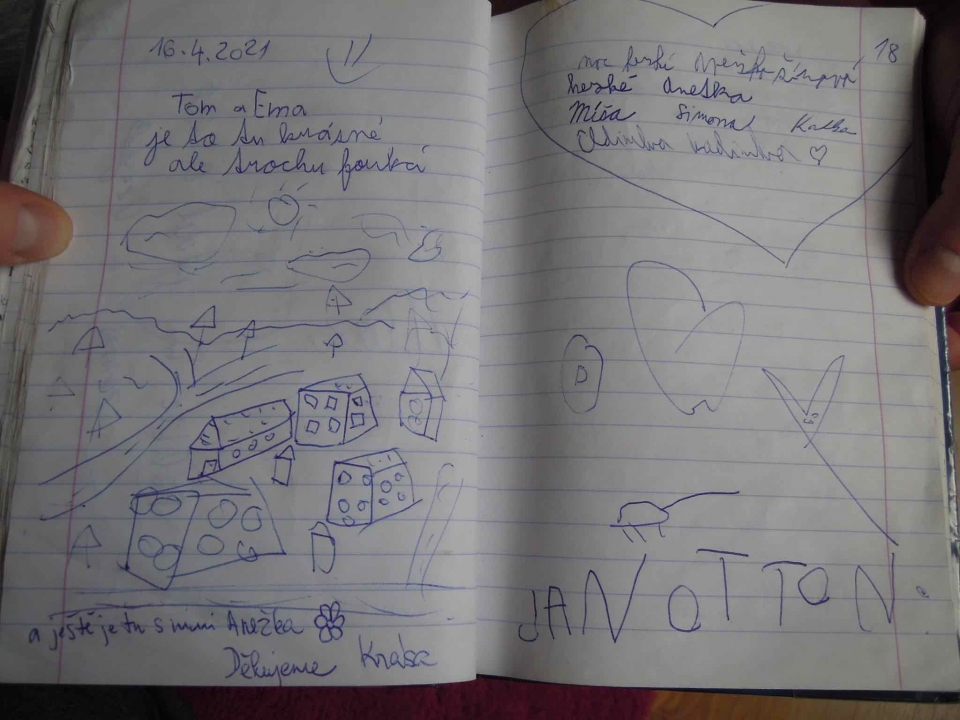 16.4.2021
Tom a Ema
je to tu krásné
ale trochu fouká
a ještě je tu s námi Anežka
Děkujeme Krása
18
moc hezké
hezké Anetka
Míša Simona Katka
♡
D
JAN OTTON.